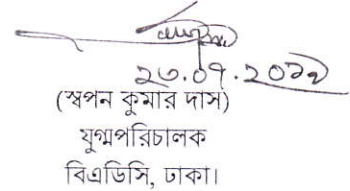 ২৩.০৭.২০১৭
(স্বপন কুমার দাস)
যুগ্মপরিচালক
বিএডিসি, ঢাকা।